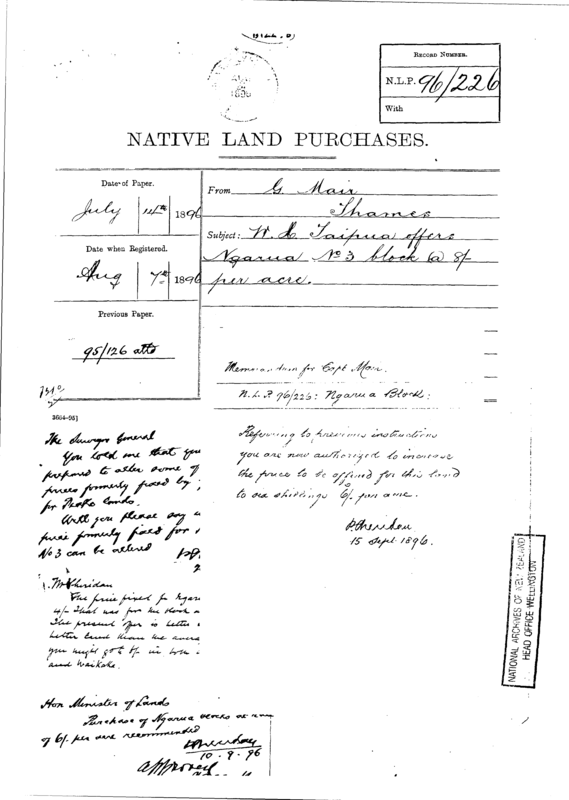 1896
RECORD NUMBER.
N.L.P. 96/226
With
NATIVE LAND PURCHASES.
Date of Paper.
July 14th 1896
Date when Registered.
Aug 7th 1896
Previous Paper.
95/126 attd
From G. Mair
Thames
Subject: W. H. Taipua offers
Ngarua No 3 block @ 8/-
per acre.
3664-95]
The Surveyor General
You told me that you
prepared to alter some of
prices formerly fixed by
for lands.
Will you please say
price formerly fixed for
No 3 can be altered
Mr Sheridan
The price fixed for Ngaru
4/- That was for the block
The present offer is better
better land than the avera
you might go to 6/- in
and Waikato.
Hon Minister of Lands
Purchase of Ngarua blocks at
of 6/- per acre recommended
P Sheridan
10.9.96
Approved
Memorandum for Capt Mair.
N.L.P. 96/226: Ngarua Block:
Referring to previous instructions
you are now authorized to increase
the price to be offered for this land
to six shillings 6/- per acre.
P. Sheridan
15 Sept 1896.
NATIONAL ARCHIVES OF NEW ZEALAND
HEAD OFFICE WELLINGTON